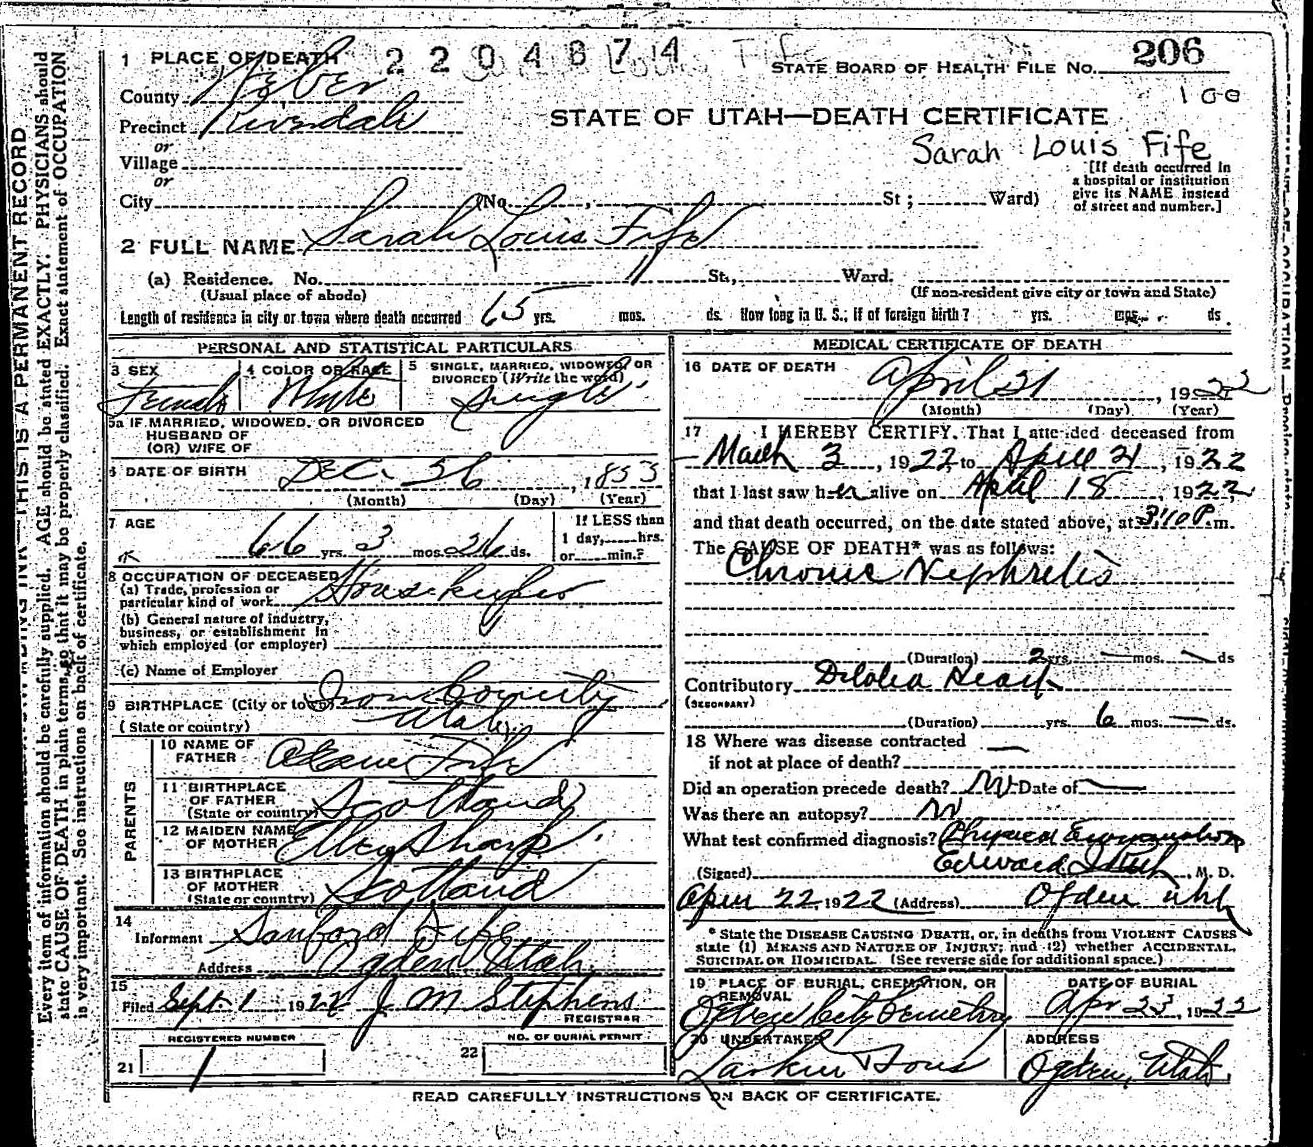 1 PLACE OF DEATH 2204874 STATE BOARD OF HEALTH FILE NO. 206
County Weber 100
Precinct Riverdale STATE OF UTAH—DEATH CERTIFICATE
or Sarah Louis Fife
Village
or
[If death occurred in
a hospital or institution
give its NAME instead
of street and number.]
City (No. , St ; Ward)
2 FULL NAME Sarah Louis Fife
(a) Residence. No. St., Ward.
(Usual place of abode) (If non-resident give city or town and State)
Length of residence in city or town where death occurred 65 yrs. mos. ds. How long in U. S.; if of foreign birth? yrs. mos. ds
PERSONAL AND STATISTICAL PARTICULARS
3 SEX 4 COLOR OR RACE 5 SINGLE, MARRIED, WIDOWED, OR
DIVORCED (Write the word)
Female White Single
5a IF MARRIED, WIDOWED, OR DIVORCED
HUSBAND OF
(OR) WIFE OF
6 DATE OF BIRTH Dec. 26, 1855
(Month) (Day) (Year)
7 AGE If LESS than
66 yrs. 3 mos. 26 ds. 1 day, hrs.
or min.?
8 OCCUPATION OF DECEASED
(a) Trade, profession or
particular kind of work Housekeeper
(b) General nature of industry,
business, or establishment in
which employed (or employer)
(c) Name of Employer
9 BIRTHPLACE (City or town) Iron County
(State or country) Utah
PARENTS
10 NAME OF
FATHER Adam Fife
11 BIRTHPLACE
OF FATHER
(State or country) Scotland
12 MAIDEN NAME
OF MOTHER Ellen Sharp
13 BIRTHPLACE
OF MOTHER
(State or country) Scotland
14
Informent Sanford Fife
Address Ogden Utah
15
Filed Sept. 1 1922 J M Stephens
REGISTRAR
REGISTERED NUMBER NO. OF BURIAL PERMIT
21 1 22
MEDICAL CERTIFICATE OF DEATH
16 DATE OF DEATH
April 21, 1922
(Month) (Day) (Year)
17 I HEREBY CERTIFY. That I attended deceased from
March 3, 1922, to April 21, 1922
that I last saw her alive on April 18, 1922
and that death occurred, on the date stated above, at 3:10 P. m.
The CAUSE OF DEATH* was as follows:
Chronic Nephretis
(Duration) 2 yrs. — mos. — ds
Contributory Dilated Heart
(SECONDARY)
(Duration) yrs. 6 mos. — ds.
18 Where was disease contracted
if not at place of death? —
Did an operation precede death? No Date of —
Was there an autopsy? No
What test confirmed diagnosis? Physical Examination
(Signed) Edward M. D.
April 22, 1922 (Address) Ogden Utah
* State the DISEASE CAUSING DEATH, or, in deaths from VIOLENT CAUSES
state (1) MEANS AND NATURE OF INJURY; and (2) whether ACCIDENTAL,
SUICIDAL OR HOMICIDAL. (See reverse side for additional space.)
19 PLACE OF BURIAL, CREMATION, OR
REMOVAL DATE OF BURIAL
Ogden City Cemetery Apr 23, 1922
20 UNDERTAKER ADDRESS
Larkin & Sons Ogden, Utah
READ CAREFULLY INSTRUCTIONS ON BACK OF CERTIFICATE.
THIS IS A PERMANENT RECORD
Every item of information should be carefully supplied. AGE should be stated EXACTLY. PHYSICIANS should
state CAUSE OF DEATH in plain terms, so that it may be properly classified. Exact statement of OCCUPATION
is very important. See instructions on back of certificate.